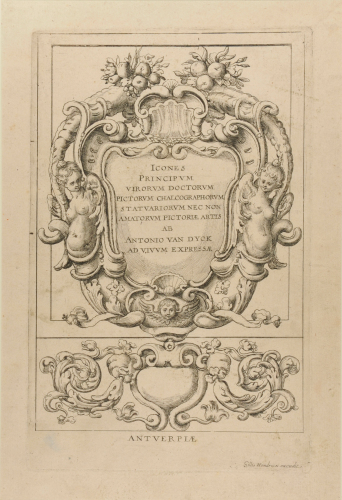 ICONES
PRINCIPVM
VIRORVM DOCTORVM
PICTORVM CHALCOGRAPHORVM
STATVARIORVM NEC NON
AMATORVM PICTORIÆ ARTIS
AB
ANTONIO VAN DYCK
AD VIVVM EXPRESSÆ
ANTVERPIÆ